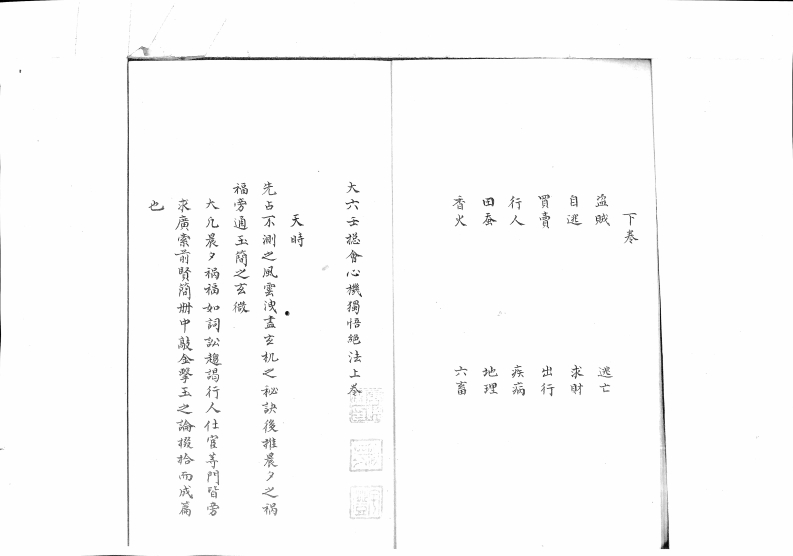 下卷
盜賊 逃亡
自逃 求財
買賣 出行
行人 疾病
田蚕 地理
香火 六畜
大六壬捴會心機獨悟絕法上卷
天時
先占不測之風雲洩盡玄机之秘訣後推晨夕之祸
福旁通玉簡之玄微
大凡晨夕祸福如詞訟趨謁行人仕宦等門皆旁
求廣索前賢簡册中敲金擊玉之論掇拾而成篇
也